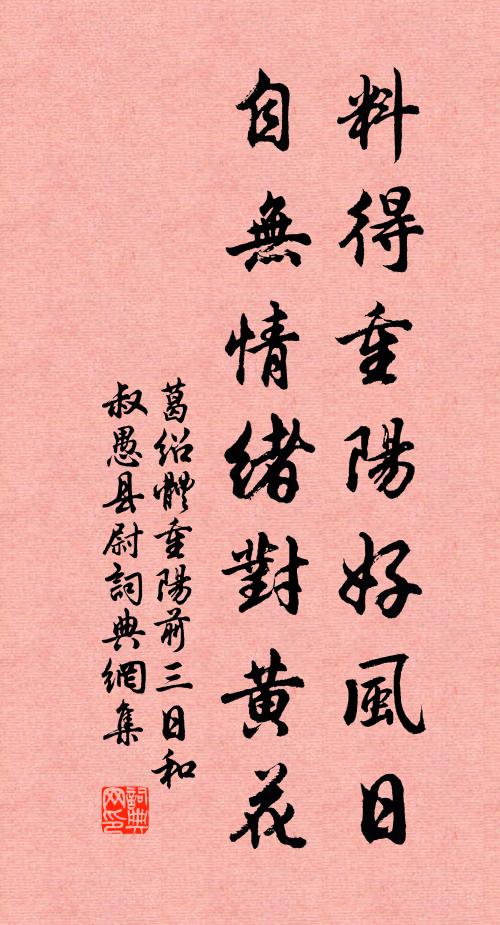 料得重陽好風日
自無情緒對黃花
葛紹體重陽前三日和
叔愚县尉詞典網集
詞典
网印